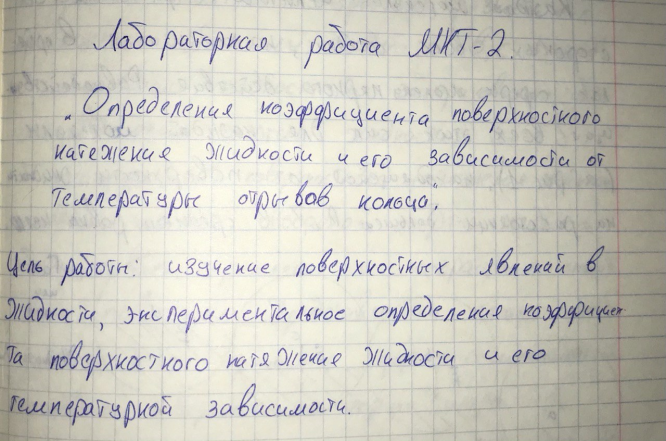 Лабораторная работа МКТ-2.
„Определения коэффициента поверхностного
натежения жидкости и его зависимости от
температуры отрывов кольца".
Цель работы: изучение поверхностных явлений в
жидкости, экспериментальное определения коэффициен
та поверхностного натяжение жидкости и его
температурной зависимости.